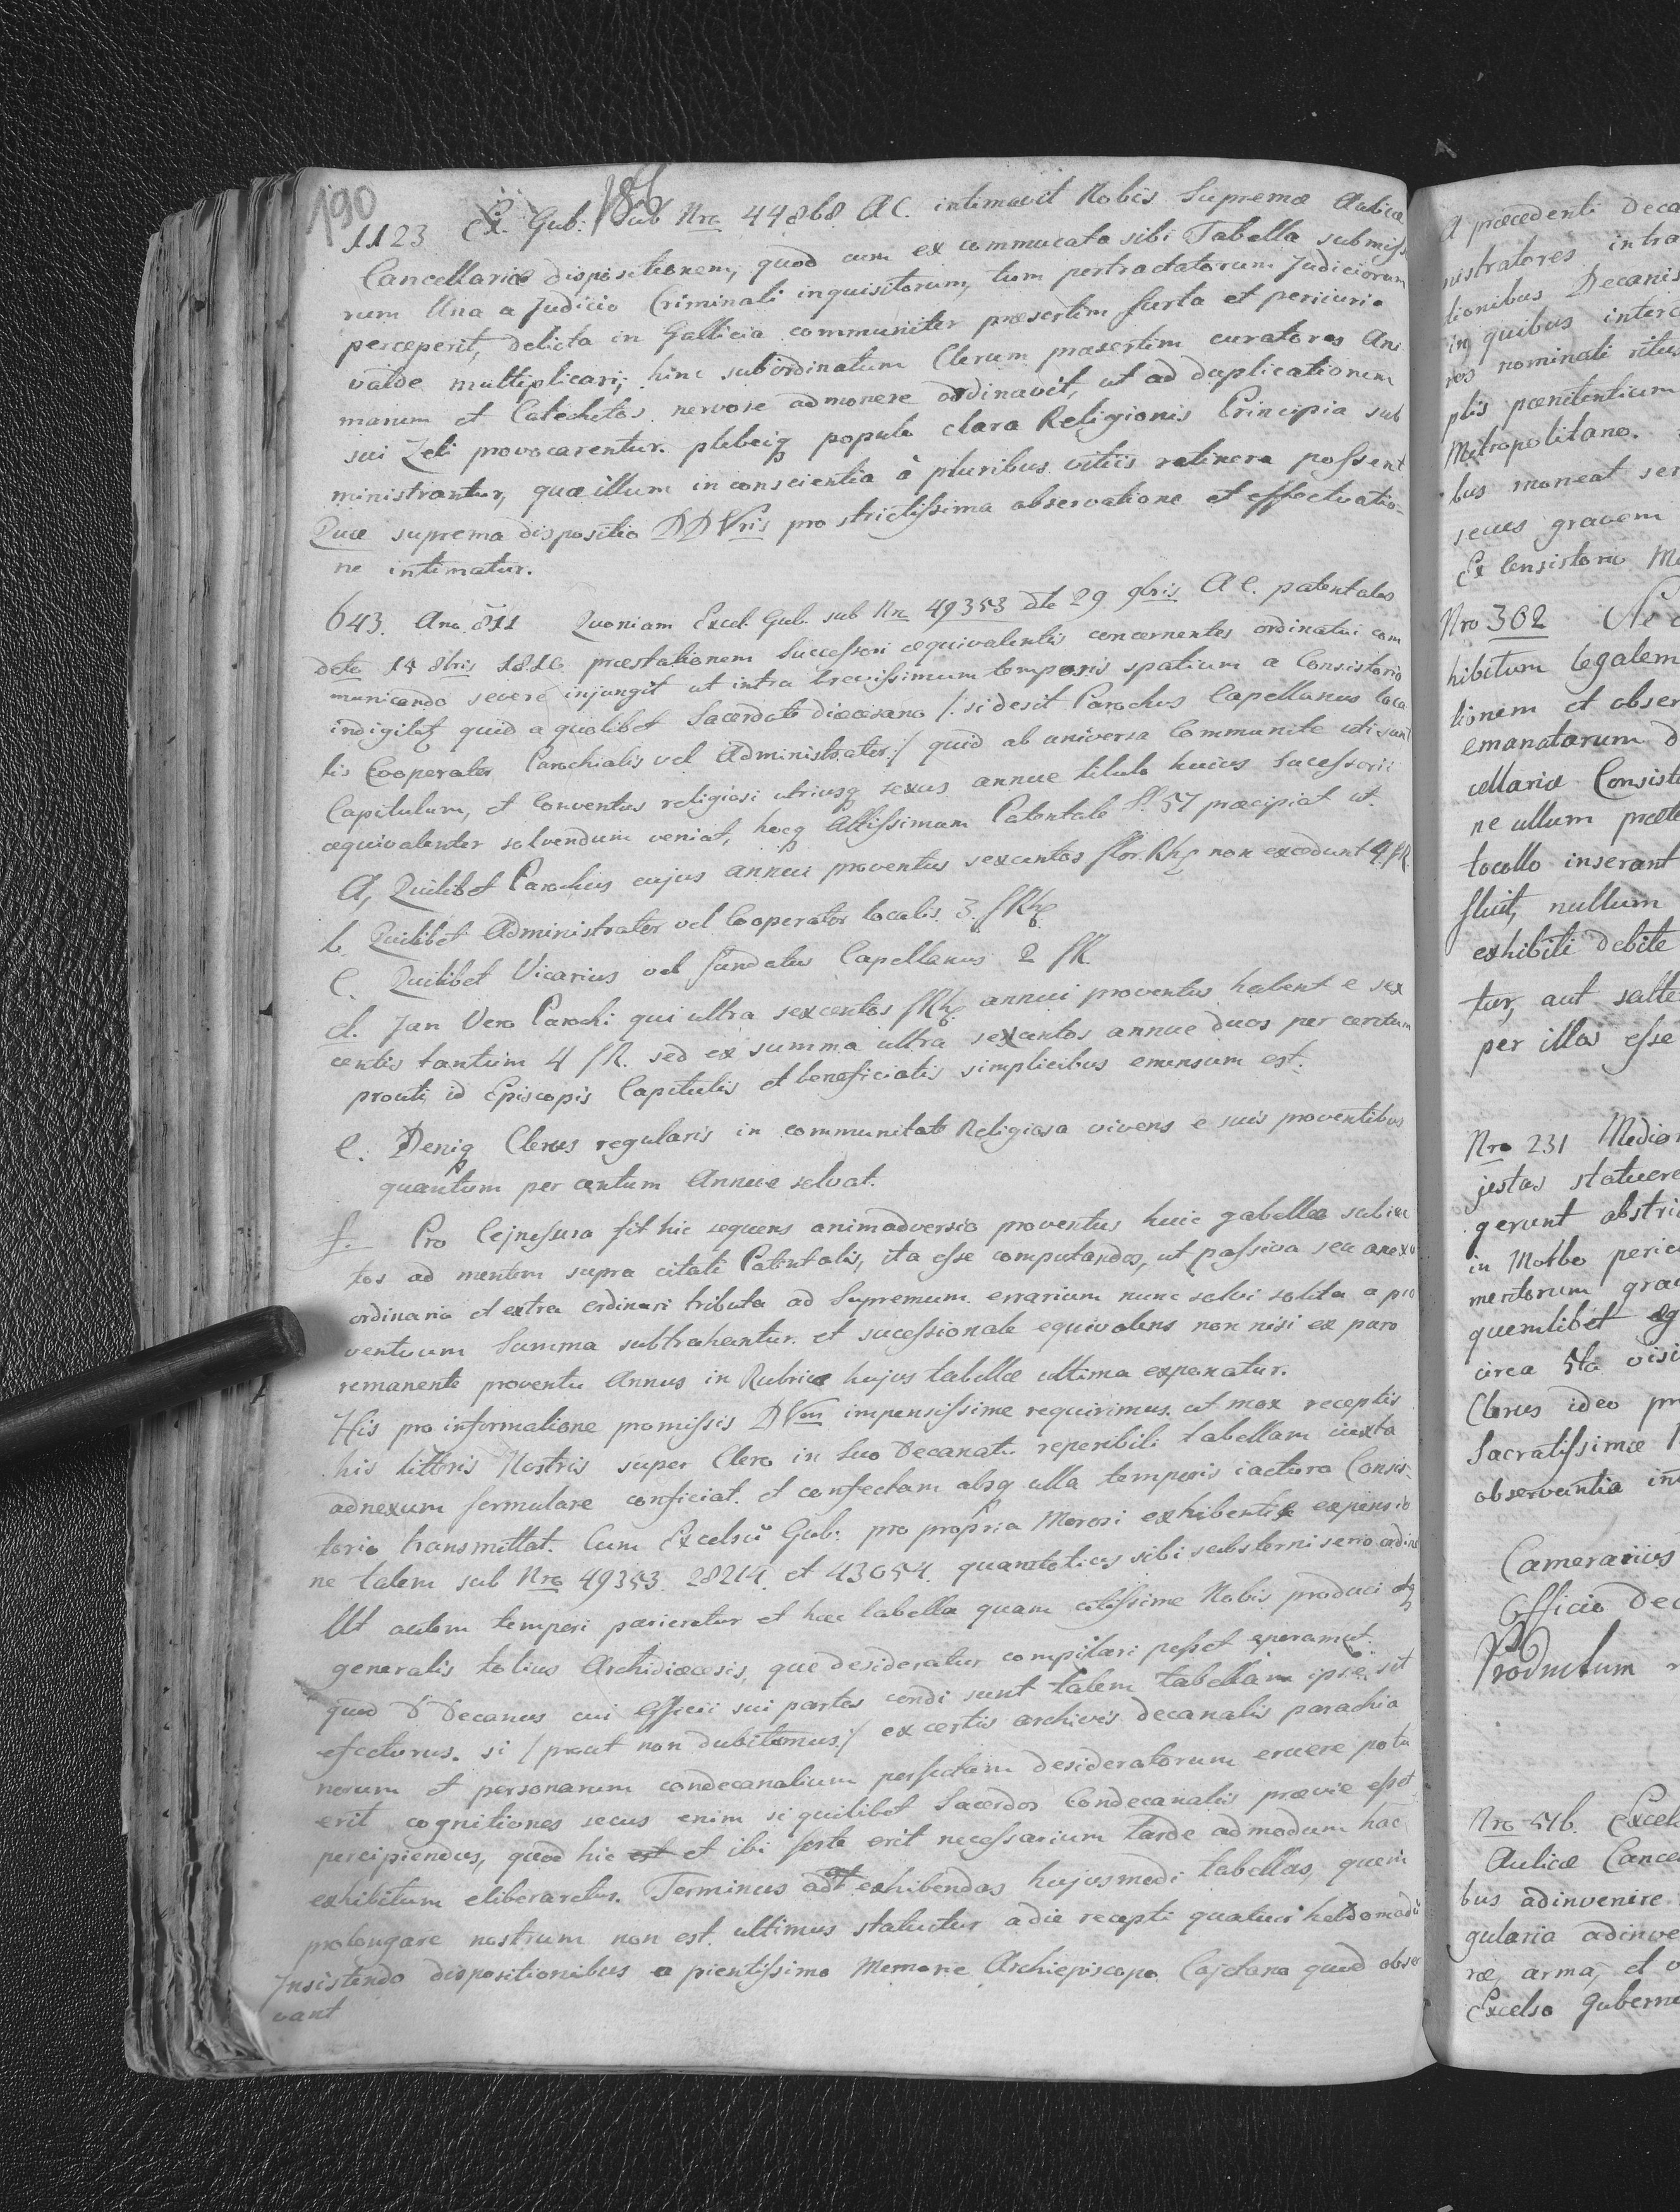 190 186
1123 Ex. Gub. sub Nro 44868 A C. intimavit Nobis Supremæ Aulicæ
Cancellariæ dispositionem, quod cum ex commucata sibi Tabella submiss
rum Una a Judicio Criminali inquisitorum, tum pertractatorum Judiciorum
perceperit, delicta in Gallicia communiter præsertim furta et periuria
valde multiplicari; hinc subordinatum Clerum præsertim curatores Ani
marum et Catechetas nervose admonere ordinavit, ut ad duplicationem
sui Zeli provocarentur. plebeiq populo clara Religionis Principia sub
ministrantur, quæ illum in conscientia à pluribus vitiis retinere possent
Quæ suprema dispositio DD Vris pro strictissima observatione et effectuatio-
ne intimatur.
643. Ano 811 Quoniam Excel. Gub. sub Nro 49353 dte 29 9bris A C. patentales
dete 15 8bris 1810 præstationem Successori æquivalentis concernentes ordinatui com
municando severe injungit ut intra brevissimum temporis spatium a Consistorio
indigilatq quid a quolibet Sacerdote diœcesano /: si desit Parochus Capellanus loca
lis Cooperator Parochialis vel Administrator :/ quid ab universa Communite uti sunt
Capitulum, et Conventus religiosi utriusq sexus annue titulo huius Sucessorii
æquivalenter solvendum veniat, hocq Altissimum Patentale §. 57 præcipiat ut.
A, Quilibet Parochus cujus annui proventus sexcentos flor. Rh non excedunt 4 fR.
b Quilibet Administrator vel Cooperator localis 3. fRh
C. Quilibet Vicarius vel fundatus Capellanus 2 fR.
d. Jan Vero Parochi qui ultra sexcentos fRh annui proventus habent e sex
centis tantum 4 fR. sed ex summa ultra sexcentos annue duos per centum
prouti id Episcopis Capitulis et beneficiatis simplicibus emensum est.
e. Deniq Clerus regularis in communitate Religiosa vivens e suis proventibus
quantum per centum Annue solvat.
f. Pro Cejnossura sit hic sequens animadversio proventus huic gabellæ subiec
tos ad mentem supra citati Patentalis, ita esse computandos, ut passiva seu anexa
ordinaria et extra ordinari tributa ad Supremum errarium nunc solvi solita a pro
ventuum Summa subtrahantur. et sucessionale equivalens non nisi ex paro
remanente proventu Annus in Rubrica hujus tabellæ ultima exponatur.
His pro informatione promissis D Vm impensissime requirimus. ut mox receptis
his littris Nostris super Clero in Suo Decanatu reperibili tabellam iuxta
adnexum formulare conficiat. et confectam absq ulla temporis iactura Consis-
torio transmittat. Cum Excelsū Gub: pro propria Morosi exhibentis expensio
ne talem sub Nro 49353. 28214. et 43054. quantotius sibi substerni serio ordine
Ut autem tempori parieretur et hæc tabella quam citissime Nobis produci atq
generalis totius Archidiœcesis, que desideratur compilari posset speramus.
quod D Decanus cui Officii sui partes cordi sunt talem tabellam ipse sit
efecturus. si / prout non dubitamus :/ ex certis archivis decanalis parochia
norum et personarum condecanalium perfectam desideratorum eruere potu
erit cognitiones secus enim si quilibet Sacerdos Condecanalis prævie esset
percipiendus, quod hic est et ibi forte erit necessarium tarde admodum hac
exhibitum eliberaretur. Terminus ad exhibendas hujusmodi tabellas, quem
prolongare nostrum non est. ultimus statuitur a die recepti quatuor hebdomadū
Insistendo dispositionibus a pientissimo Memorie Archiepiscopo Cajetano quod obser
vant
A præcedenti Deca
nistratores intra
tionibus Decanis
in quibus interc
ros nominali ritus
plis pœnitentium
Metropolitano.
bus moneat ser
secus gravem
Ex Consistorio Me
Nro 302 Ne
hibitum legalem
tionem et obser
emanatorum d
cellariæ Consist
ne ullum præte
tocollo inserant
fluit, nullum
exhibiti debite
tur, aut salte
per illos esse
Nro 231 Medior
justas statuere
gerunt abstri
in Motbo peric
mentorum gra
quemlibet eg
circa 5to visi
Clerus ideo pr
Sacratissimæ
observantia in
Camerarius
Officio Dec
Productum
Nro 516. Excels
Aulicæ Cance
bus adinvenire
gularia adinve
ræ, arma, et v
Excelso Guberni